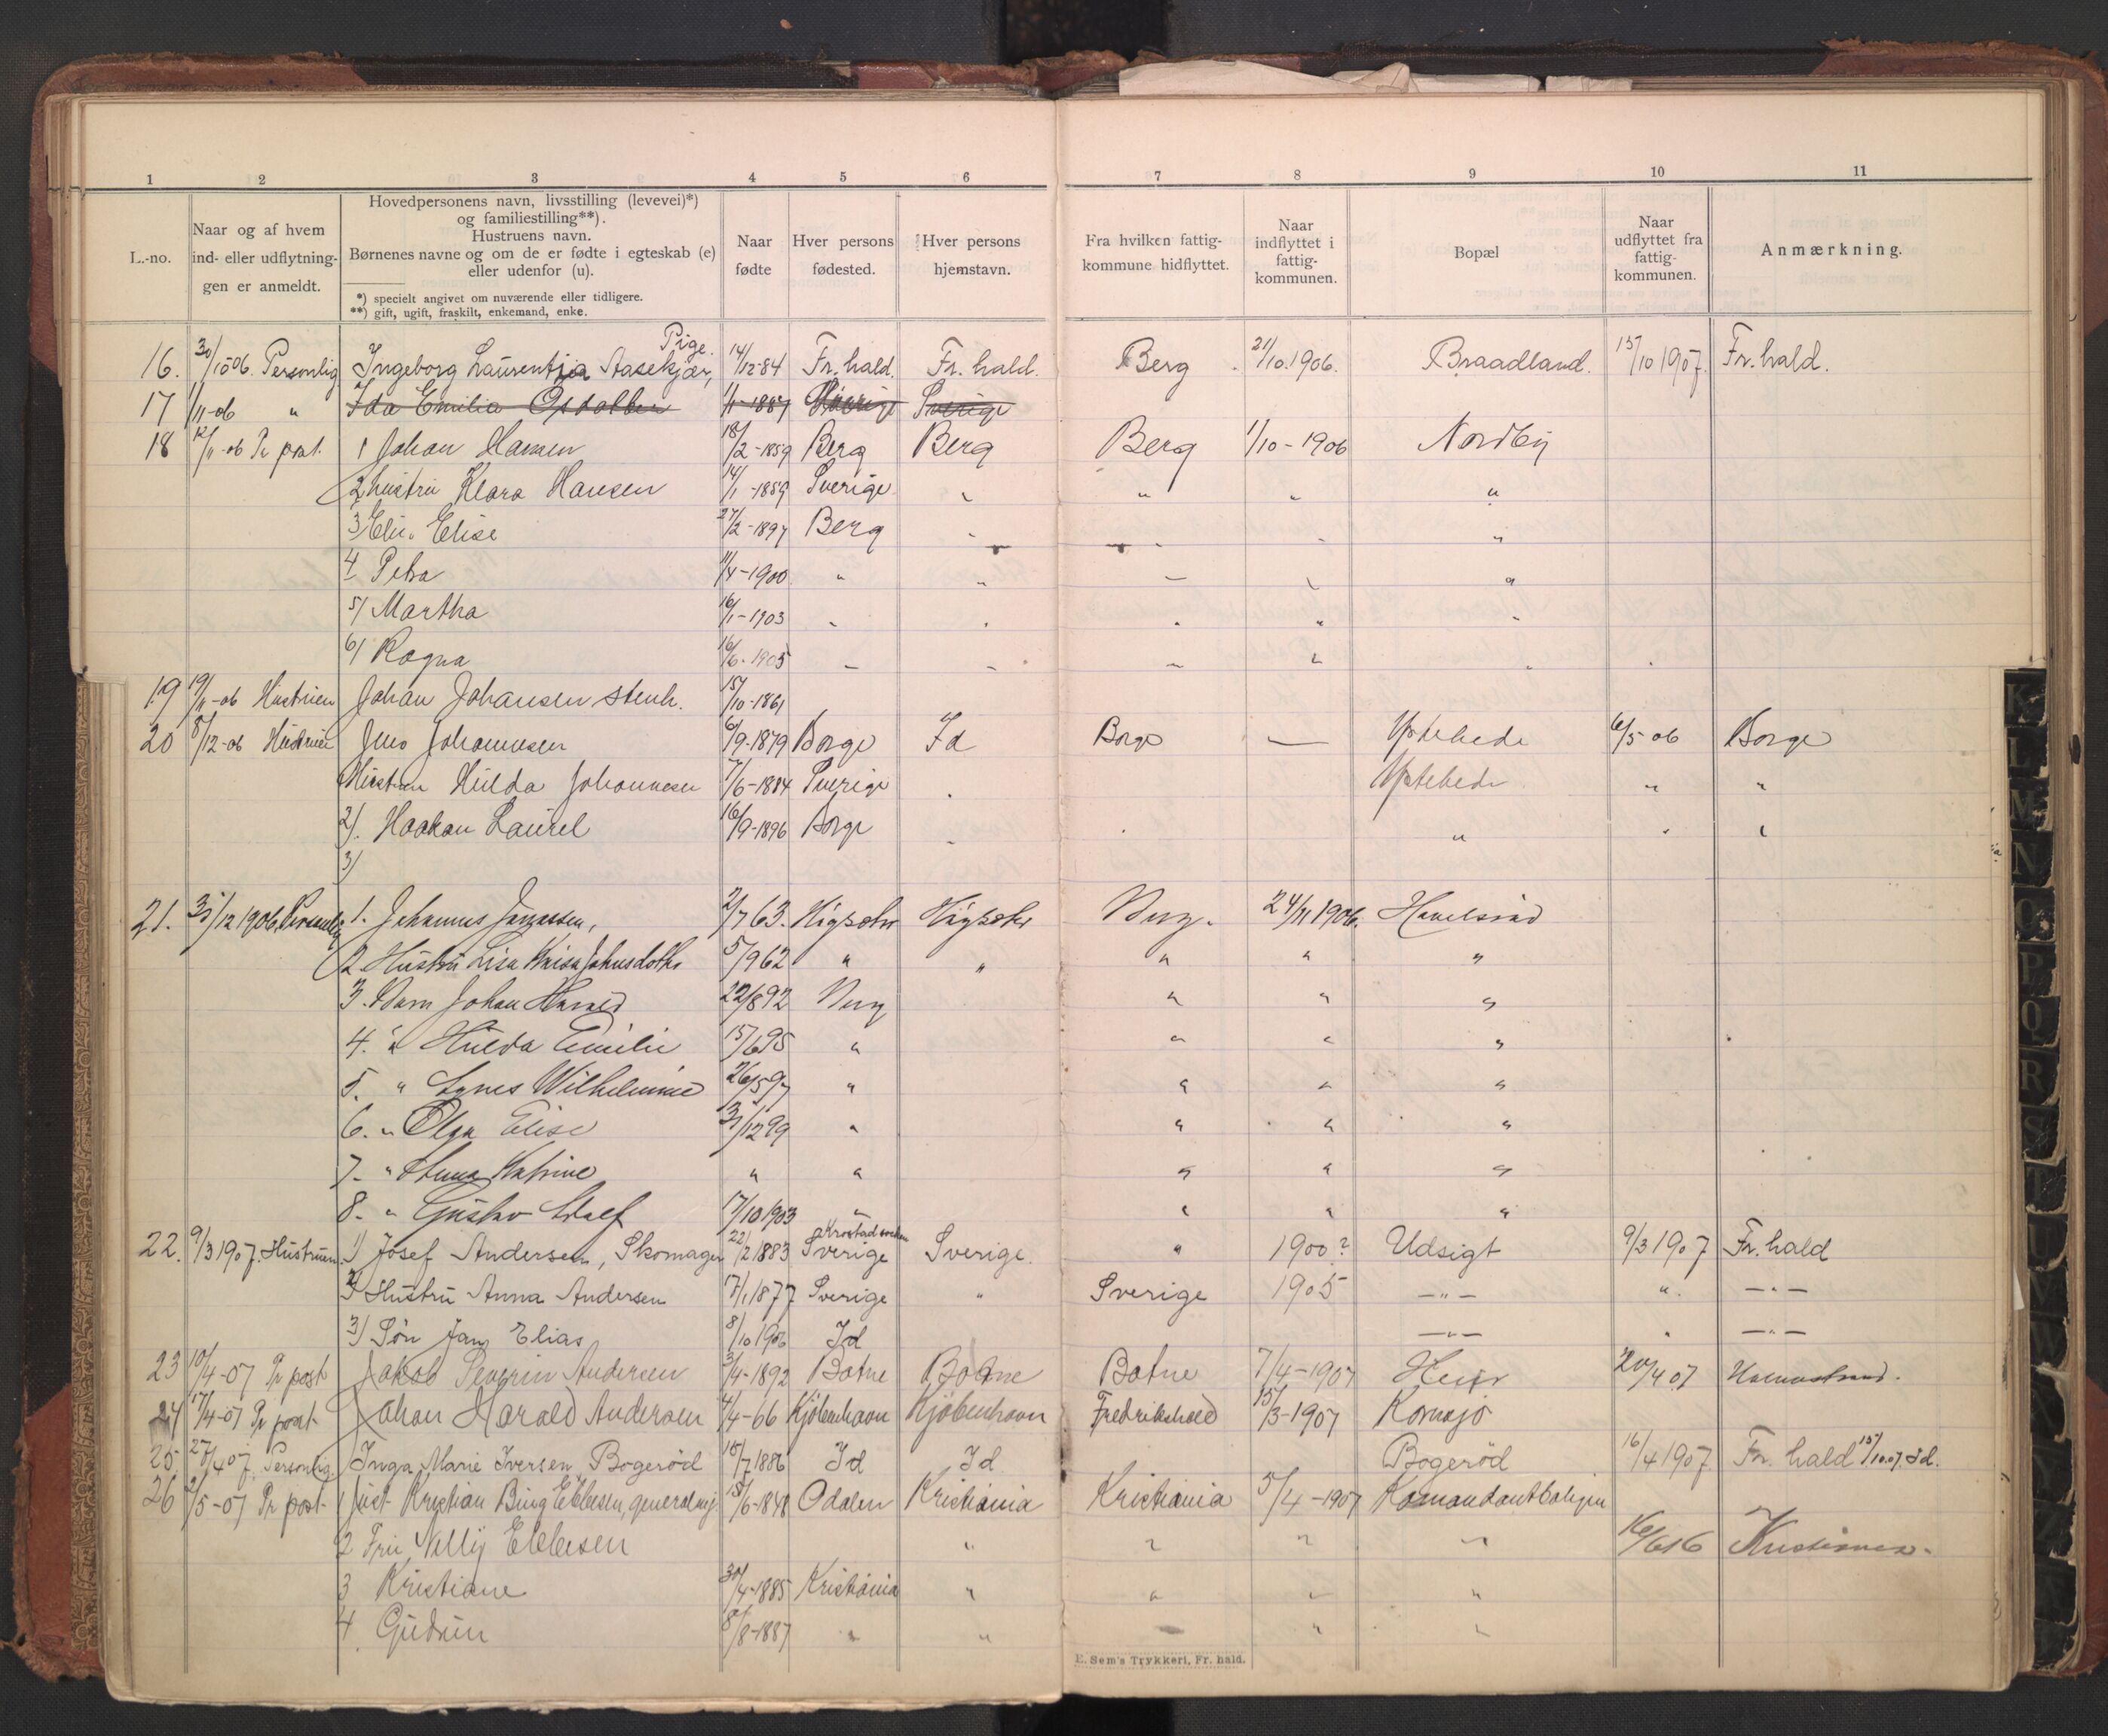 1 2 3 4 5 6 7 8 9 10 11
L.-no.
Naar og af hvem
ind- eller udflytning-
gen er anmeldt.
Hovedpersonens navn, livsstilling (levevei)*)
og familiestilling**).
Hustruens navn.
Børnenes navne og om de er fødte i egteskab (e)
eller udenfor (u).
*) specielt angivet om nuværende eller tidligere.
**) gift, ugift, fraskilt, enkemand, enke.
Naar
fødte
Hver persons
fødested.
Hver persons
hjemstavn.
Fra hvilken fattig-
kommune hidflyttet.
Naar
indflyttet i
fattig-
kommunen.
Bopæl
Naar
udflyttet fra
fattig-
kommunen.
Anmærkning.
Pige.
16. 30/10 06. Personlig Ingeborg Laurentia Aasekjær, 14/12-84 Fr.hald. Fr. hald. Berg 21/10.1906. Braadland. 15/10 1907. Fr. hald.
17 1/11-06 " Ida Emilia 1/11-1887 Sverige Sverige
18 12/11-06 Pr post. 1 Johan Hansen 18/2-1859 Berg Berg Berg 1/10-1906 Nordby
2 hustru Klara Hansen 14/1-1859 Sverige " " " "
3 Elise 27/2-1897 Berg " " " "
4 Petra 11/4-1900 " " " " "
5/ Martha 16/1-1903 " " " " "
6/ Ragna 16/6-1905 " " " " "
19 19/11-06 Hustruen Johan Johansen stenh. 15/10-1861
20 8/12-06 Hustruen Jens Johannesen 6/9-1879 Borge Id Borge — 6/5 06 Borge
Hustru Hulda Johannesen 7/6-1884 Sverige " " "
2/. Haakon Laurel 16/9-1896 Borge " " " "
3/
21. 31/12 1906. Personlig 1. Johannes Jonassen, 2/7 63. Berg. 24/11 1906.
2 Hustru Lisa Kaisa 5/9 62 " " " " "
3. Barn Johan 22/8 92 Berg " " "
4. " Hulda Emilie 15/6 95 " " " "
5. " Agnes Wilhelmine 26/5 97 " " " "
6. " Olga Elise 31/12 99 " " " "
7. " Anna Katrine " " " " "
8. " Gustav Adolf 17/10 1903 " " " "
22. 9/3 1907. Hustruen. 1) Josef Andersen, Skomager 22/2 1883 Sverige Sverige. " 1900? Udsigt 9/3 1907 Fr. hald
2) Hustru Anna Andersen 17/1 1877 Sverige " Sverige 1905 —"— " —"—
3) Søn Jans Elias 8/10 1906 Id —"— " —"—
23 10/4-07 Pr post Jakob Severin Andersen 3/4-1892 Botne Botne Botne 7/4-1907 20/4 07 Holmestrand.
24 17/4-07 Pr post Johan Harald Andersen 4/4-66 Kjøbenhavn Kjøbenhavn Fredrikshald 15/3-1907 Kornsjø
25. 27/4 07. Personlig. Inga Marie Iversen, Bogerød 15/7 1886 Id Id Bogerød 16/4 1907. Fr. hald 15/10.07. Id.
26 2/5-07 Pr post 1 Just Kristian Bing Ebbesen, generalmj. 15/6-1848 Odalen Kristiania Kristiania 5/4-1907 Komandantboligen
2 Fru Nelly Ebbesen " " " " 16/6 16 Kristiania.
3 Kristiane 30/4-1885 Kristiania " " " "
4 Gudrun 8/8-1887 " " " "
E. Sem's Trykkeri, Fr. hald.
K
L
M
N
O
P
Q
R
S
T
U
V